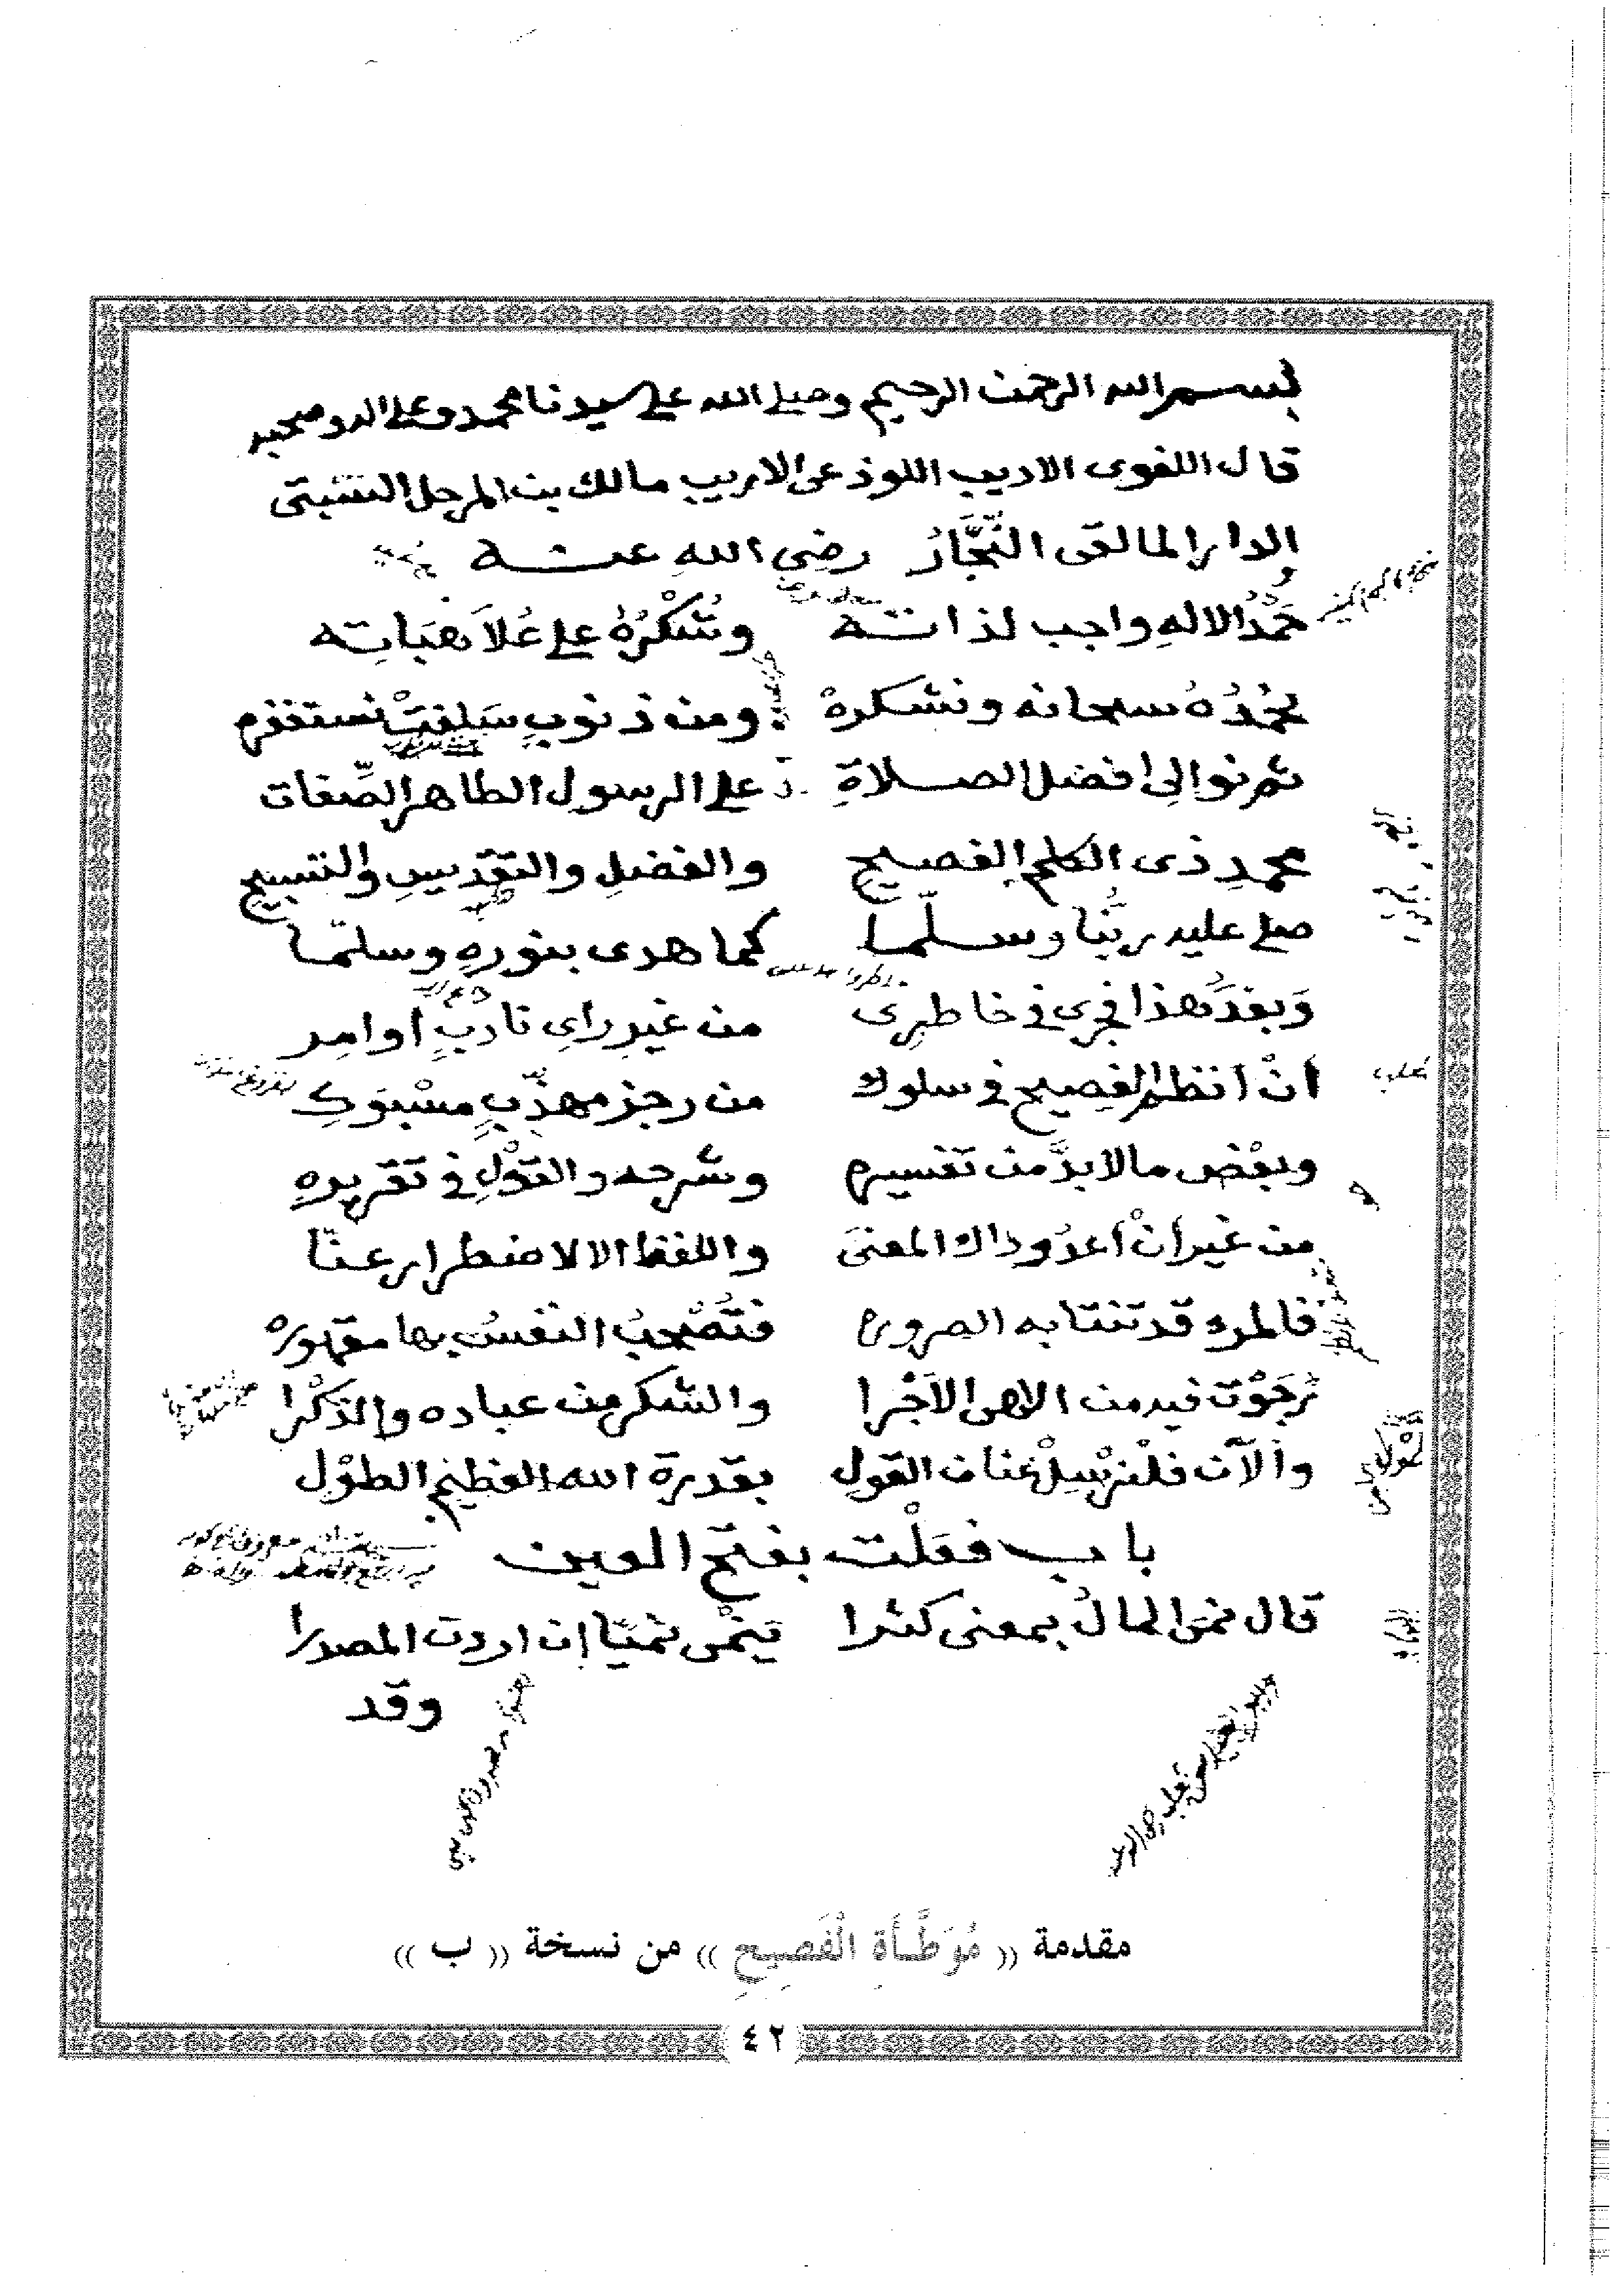 بسم الله الرحمن الرحيم وصلى الله على سيدنا محمد وعلى اله وصحبه
قال اللغوى الاديب اللوذعى الاريب مالك بن المرحل السبتى
الدار المالقى النَّجَّارُ رضى اللهِ عنه
حَمْدُ الالهِ واجب لذاته وشُكْرُهُ على عُلاَ هَبَاتِه
نحْمَدُهُ سبحانه ونشكرهْ ومن ذنوبٍ سَلفتْ نستغفره
ثم نوالى افضل الصلاةِ على الرسول الطاهر الصِّفات
محمدٍ ذى الكلم الفصيح والفضلِ والتقْديسِ والتسبيح
صلى عليه ربُّنا وسلّما كما هدى بنورهِ وسلمّا
وَبعْدَ هذا فجرى فى خاطرِى من غيرِ راىِ نادبٍ أوامِر
انْ انظم الفصيح فى سلوك من رجز مهذّبٍ مسْبوَكِ
وبعْض ما لا بدَّ من تفسيره وشرحه والقوْلِ فى تقريرهِ
من غير أنْ أعدُو ذاك المعنىَ واللفظ الا لاضطرار عنّا
فالمرء قد تنتابه الضروره فتُصْحِبُ النفسُ بها مقهوره
رجَوْت فيه من الاهى الأَجْرا والشكر من عباده والذكْرا
والآن فلْنرْسِلْ عنان القول بقدرة الله العظيم الطوْل
باب فعَلْت بفتح العين
قال نمَى المالُ بمعنى كثرا ينمْى نميّا إن اردت المصدرا
وقد
مقدمة (( مُوَطَّأَةِ الْفَصِيحِ )) من نسخة (( ب ))
٤٢